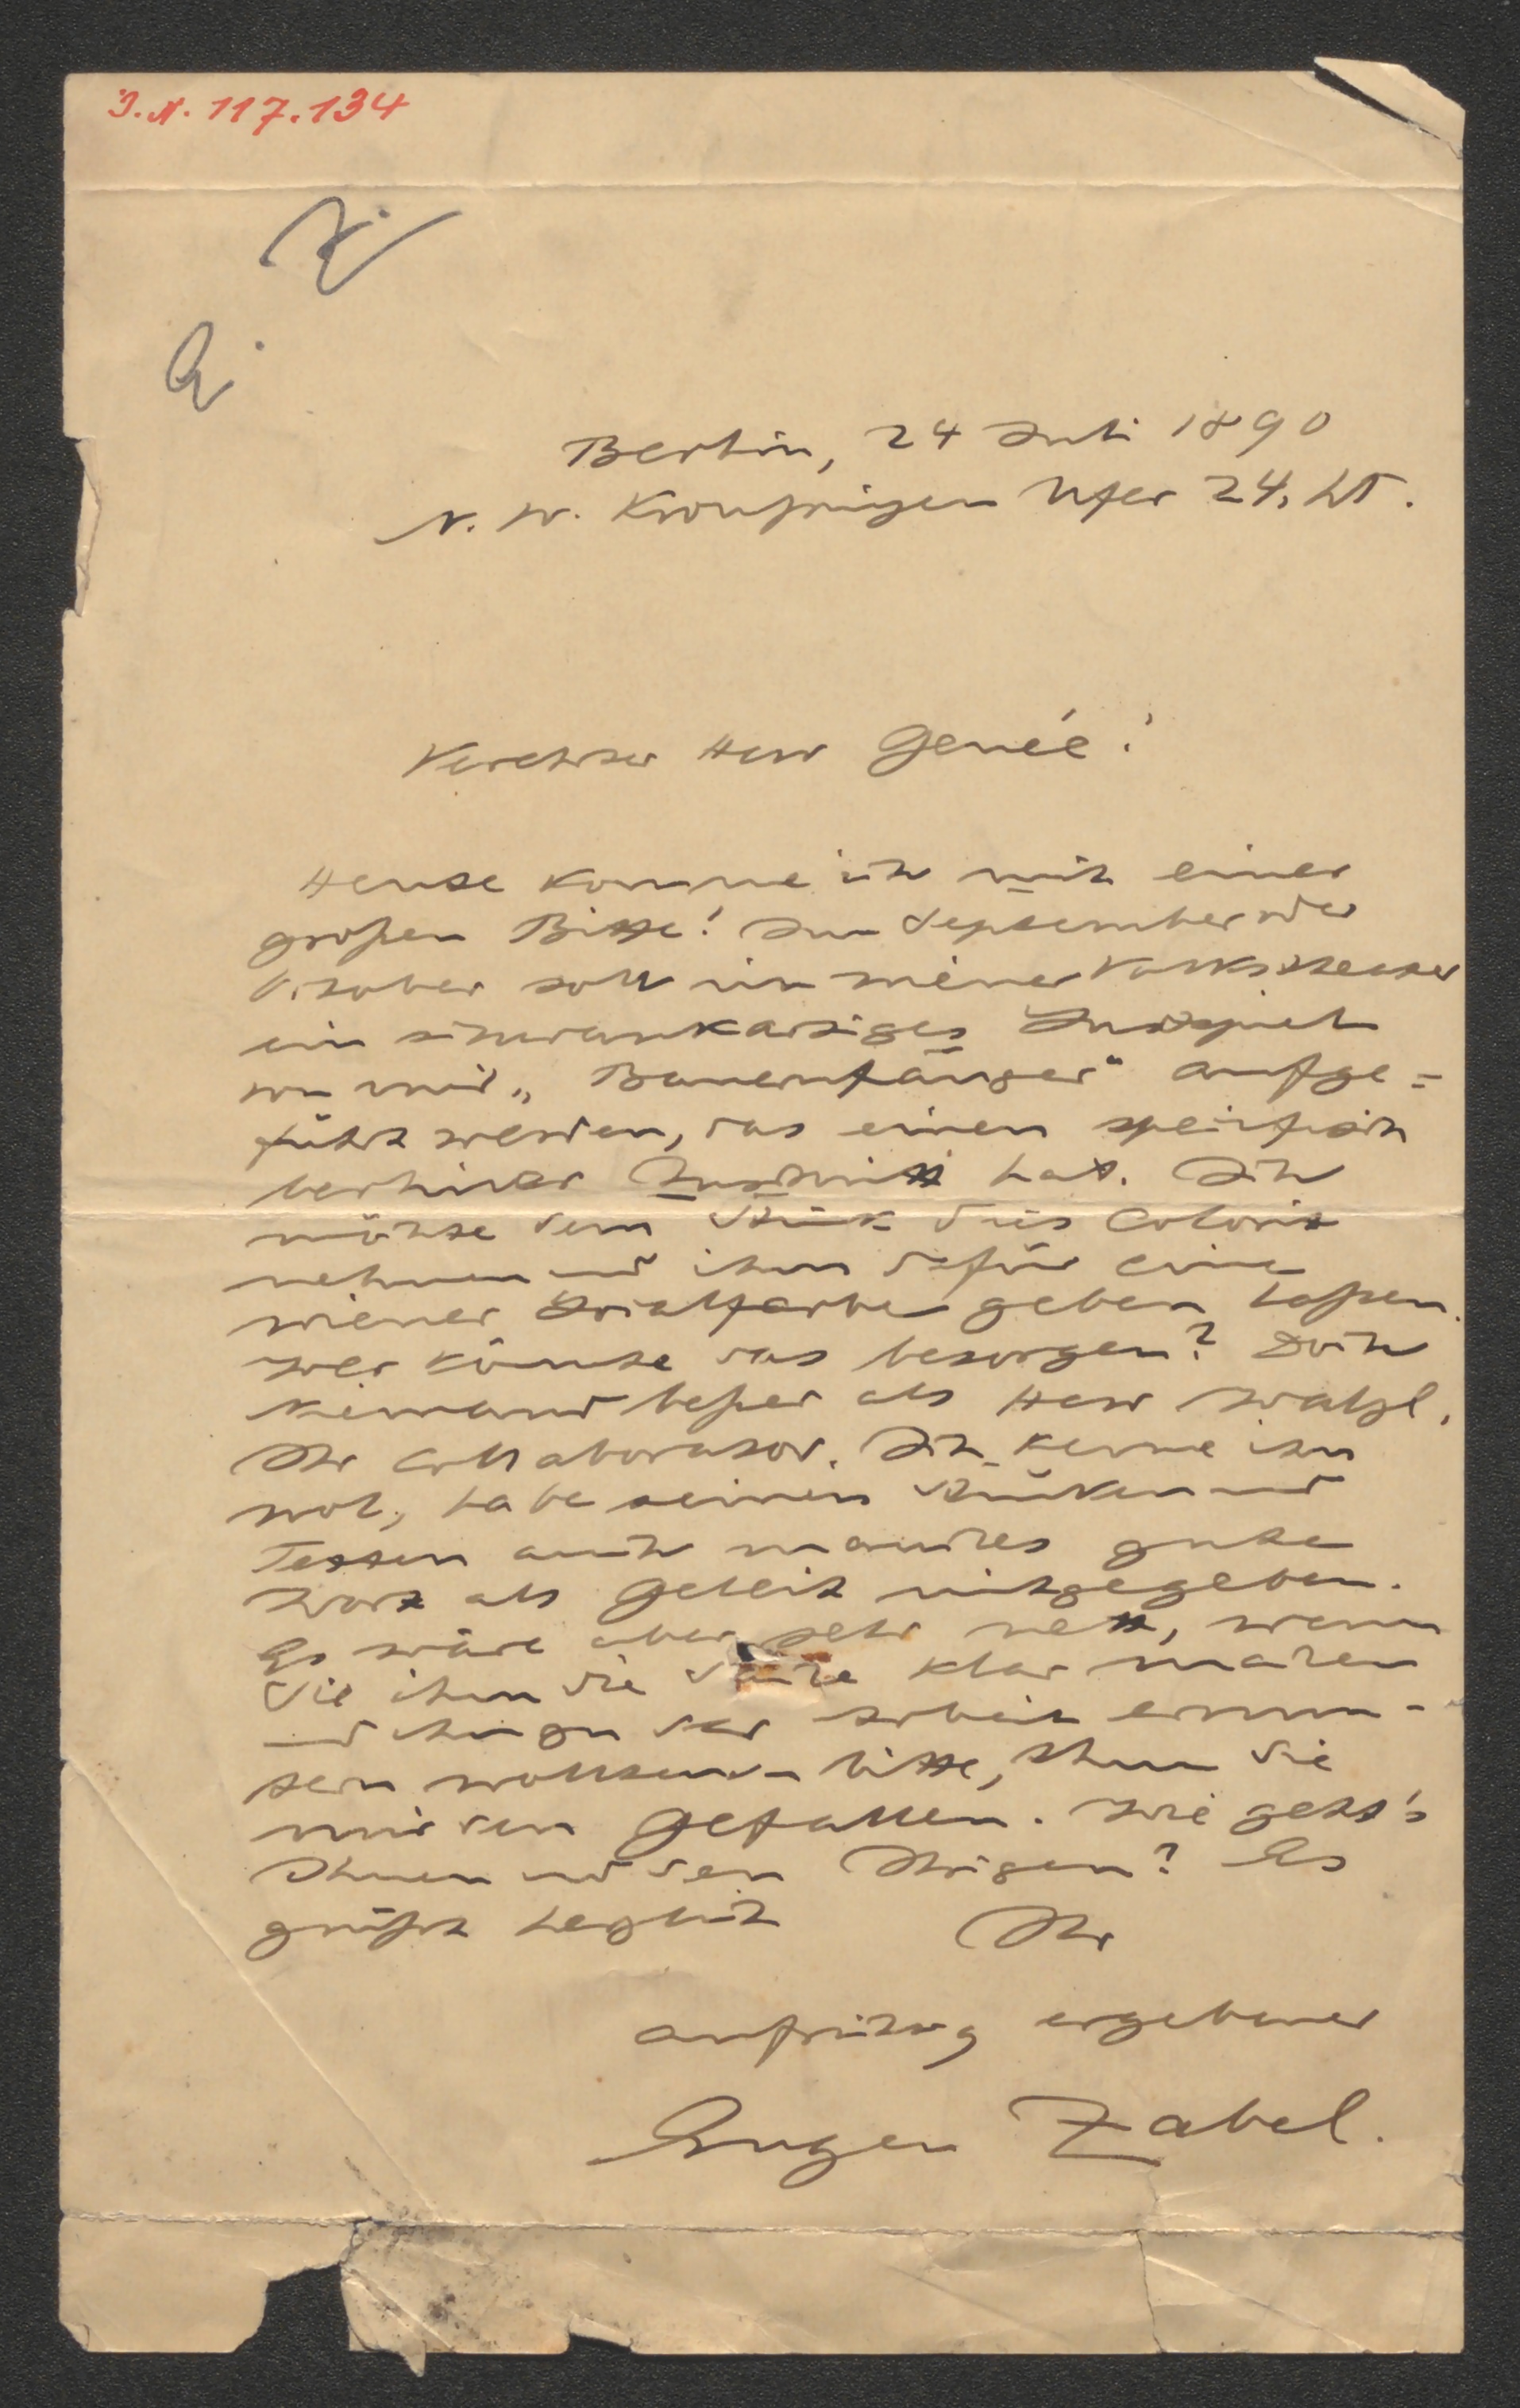 I.N. 117.134
Berlin, 24 Juli 1890
N. W. Kronprinzen Ufer 24, III.
Verehrter Herr Genée!
Heute komme ich mit einer
großen Bitte! Im September oder
October soll im wiener Volkstheater
ein schwankartiges Lustspiel
von mir „Bauernfänger" aufge=
führt werden, das einen specifisch
berliner Zuschnitt hat. Ich
möchte dem Stück dies Colorit
nehmen und ihm dafür eine
wiener Localfarbe geben laßen.
Wer könnte das besorgen? Doch
niemand beßer als Herr Walzel,
Ihr Collaborator. Ich kenne ihn
wol, habe seinen Stücken und
Texten auch manches gute
Wort als Geleit mitgegeben.
Es wäre aber sehr nett, wenn
Sie ihm die Sache klar machen
und ihn zu der Arbeit ermun-
tern wollten. Bitte, thun Sie
mir den Gefallen. Wie geht's
Ihnen und den Ihrigen? Es
grüßt herzlich Ihr
aufrichtig ergebener
Eugen Zabel.